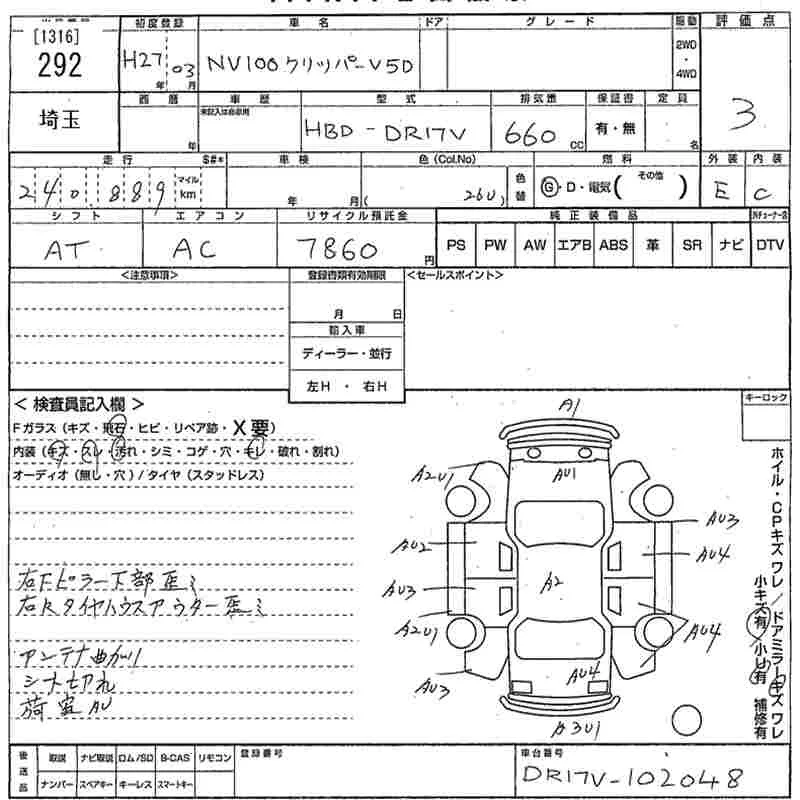 [1316]
292
初度登録
車名
ドア
グレード
駆動
評価点
H27年 03月
NV100クリッパーV5D
2WD・4WD
3
埼玉
西暦
車歴
型式
排気量
保証書
定員
年
未記入は自家用
HBD-DR17V
660 CC
有・無
名
走行
S#*
車検
色(Col.No)
色替
燃料
外装
内装
240,889
マイル km
年 月
( 26U)
G・D・電気( その他 )
E
C
シフト
エアコン
リサイクル預託金
純正装備品
AT
AC
7860円
PS PW AW エアB ABS 革 SR ナビ DTV
<注意事項>
登録書類有効期限
<セールスポイント>
月 日
輸入車
ディーラー・並行
左H・右H
<検査員記入欄>
キーロック
Fガラス(キズ・飛石・ヒビ・リペア跡・X要)
内装(キズ・スレ・汚れ・シミ・コゲ・穴・キレ・破れ・割れ)
オーディオ(無し・穴)/タイヤ(スタッドレス)
右Fピラー下部歪ミ
右Rタイヤハウスアウター歪ミ
アンテナ曲ガリ
シート切れ
荷室AU
A1
A2U1
AU1
AU3
AU2
AU4
AU3
A2
A2U1
AU4
AU3
AU4
B3U1
ホイル・CPキズワレ/ドアミラーキズワレ
小キズ有/小U有 補修有
後送品
取説 ナビ取説 ロム/SD B-CAS リモコン
ナンバー スペアキー キーレス スマートキー
登録番号
車台番号
DR17V-102048